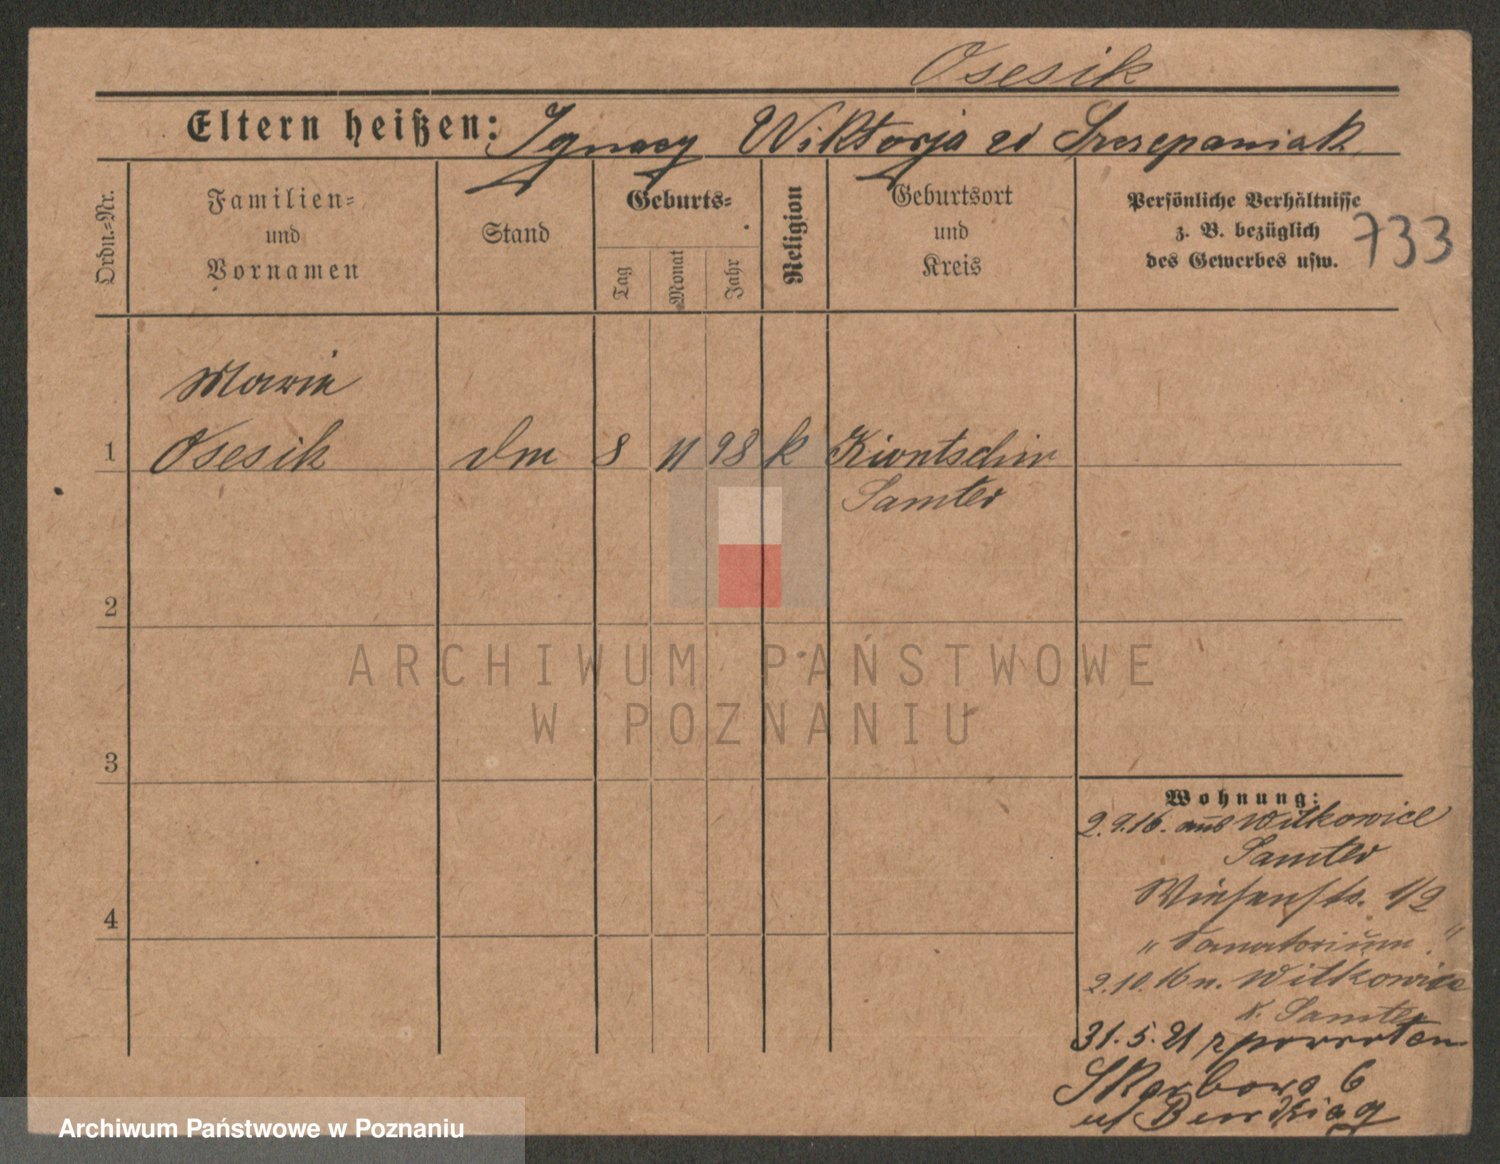 Osesik
Eltern heißen: Ignacy Wiktorja zd Szczepaniak
Ordn.-Nr.
Familien-
und
Vornamen
Stand
Geburts-
Tag
Monat
Jahr
Religion
Geburtsort
und
Kreis
Persönliche Verhältnisse
z. B. bezüglich
des Gewerbes usw.
733
Marie
1 Osesik dm 8 11 98 k Kiontschin
Samter
2
3
4
ARCHIWUM PAŃSTWOWE
W POZNANIU
Wohnung:
2.9.16. aus Witkowice
Samter
Wiesenstr. 1/2
"Sanatorium."
2.10.16 n. Witkowice
K. Samter
31.5.21 z powrotem
Skarbowa 6
u/
Archiwum Państwowe w Poznaniu